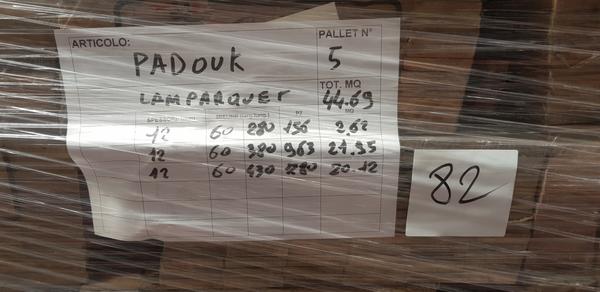 ARTICOLO: PADOUK PALLET N° 5
LAMPARQUET TOT. MQ 44.69
PZ MQ
12 60 280 156 2.62
12 60 380 963 21.95
12 60 430 780 20.12
82